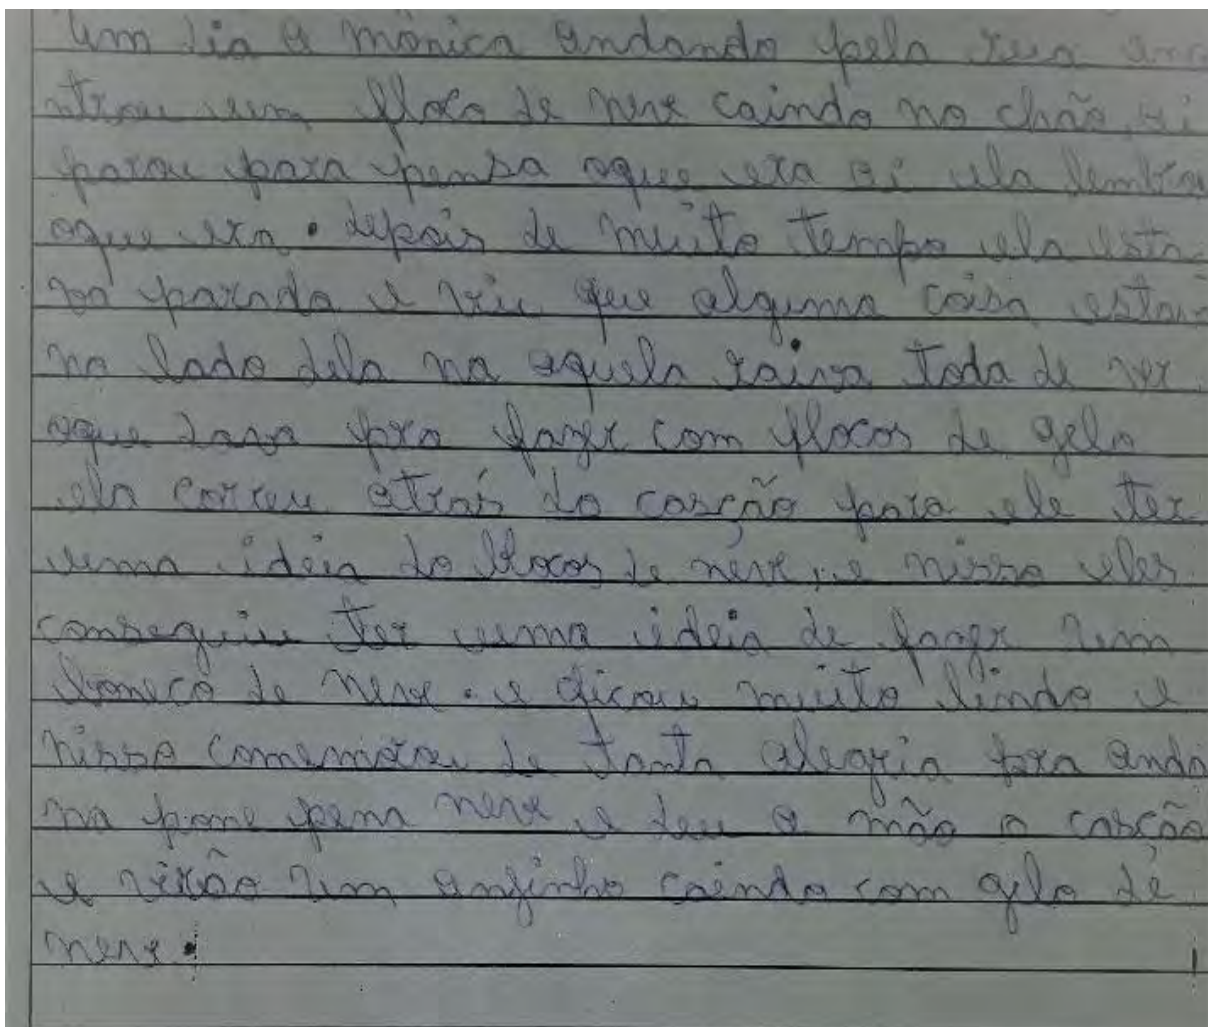 Um dia a mônica andando pela rua enco
ntrou um floco de neve caindo no chão, ai
parou para pensa oque era ai ela lembrou
oque era. depois de muito tempo ela esta-
va parada e viu que alguma coisa estava
no lado dela na aquela raiva toda de ver
oque dava pra fazer com flocos de gelo
ela correu atrás do cascão para ele ter
uma idéia do flocos de neve, e nisso eles
conseguiu ter uma ideia de fazer um
boneco de neve. e ficou muito lindo e
nisso comemorou de tanta alegria pra anda
na neve e deu a mão o cascão
e virão um anjinho caindo com gelo de
neve.